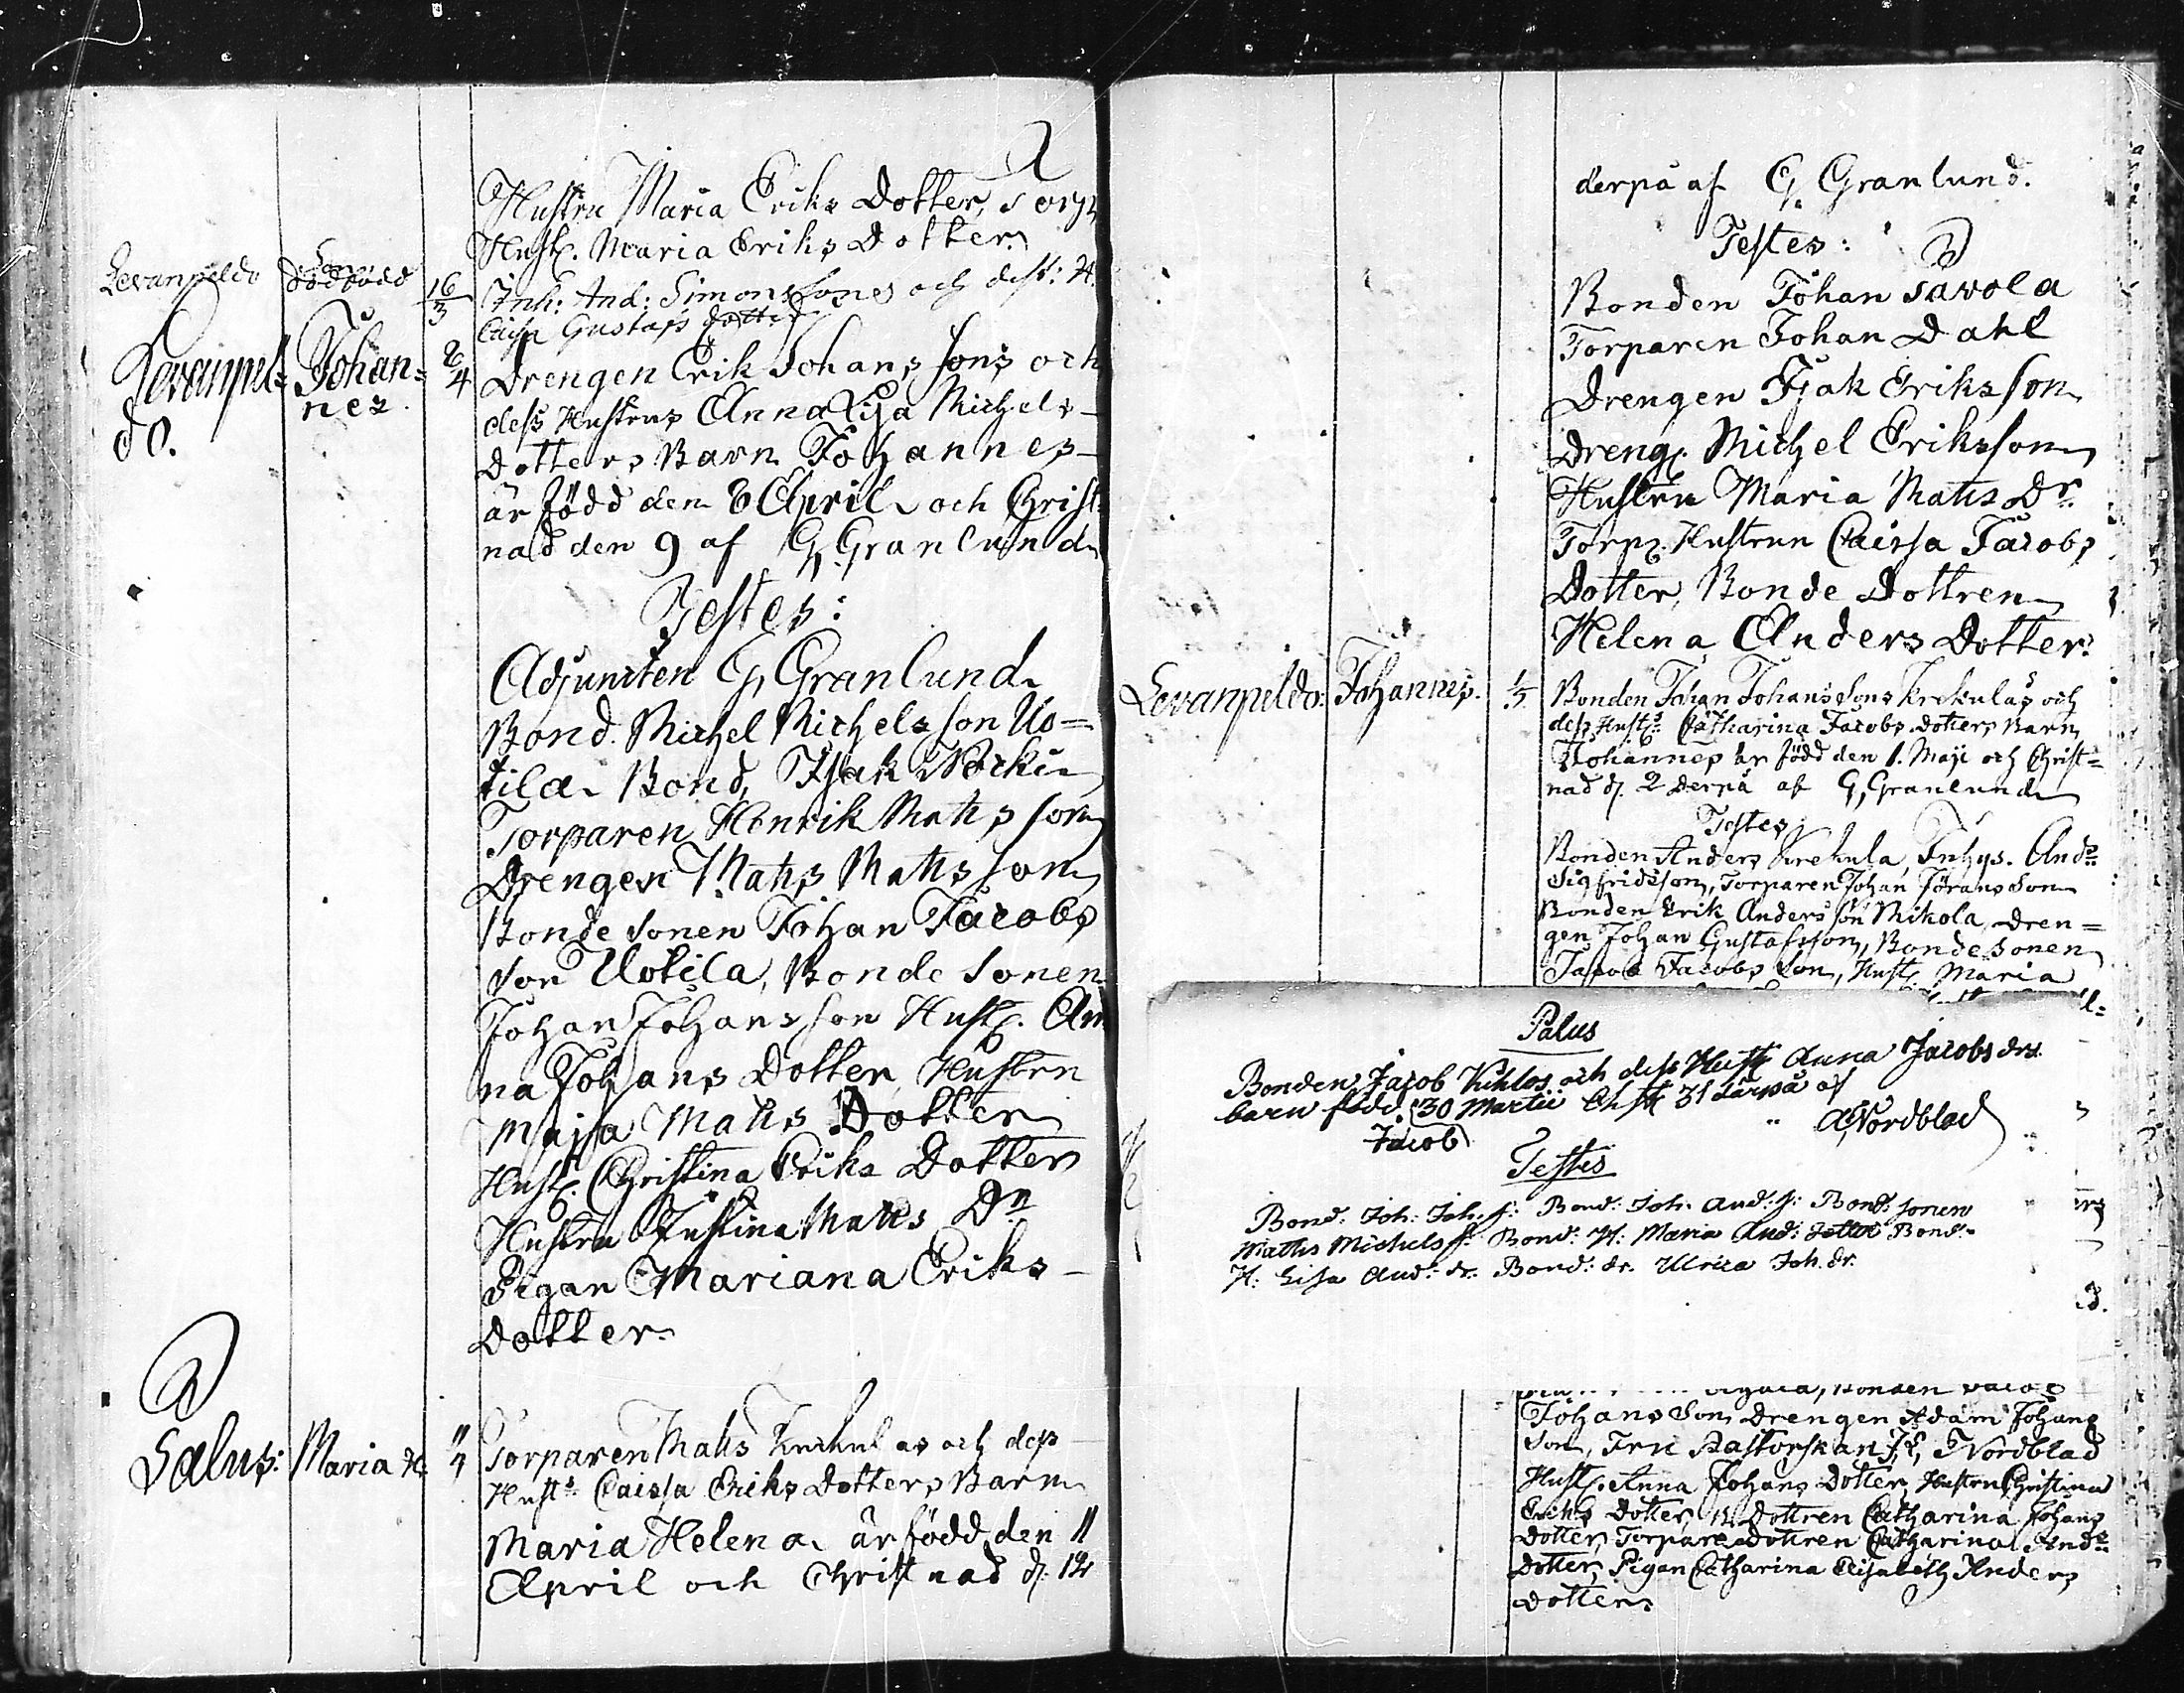 Hustru Maria Eriks Dotter,
Hust. Maria Eriks Dotter
Levanpeldo Son dödfödd 16/3 Inh: And: Simonssons och dess: H.
Caisa Gustafs dotter
Levanpel= Johan= 8/4 Drengen Erik Johans sons och
do. nes. dess Hustrus Anna Lisa Michels-
Dotters Barn Johannes-
är född den 8 April och Christ
nad den 9 af G. Granlund
Testes:
Adjuncten G. Granlund
Bond. Michel Michelsson Uo=
tila Bond, Isak
Torparen Henrik Mats son
Drengen Mats Mats son
Bonde sonen Johan Jacobs
son Uotila, Bonde sonen
Johan Johansson Hust. An
na Johans Dotter, Hustru
Majsa Mats Dotter
Hust. Christina Eriks Dotter
Hustru Justina Mats Dr
Pigan Mariana Eriks-
Dotter
Salus: Maria H. 11/4 Torparen Mats Krekulas och dess
Husts Caissa Eriks Dotters Barn
Maria Helena är född den 11
April och Christnad d. 12
derpå af G. Granlund.
Testes:
Bonden Johan Savola
Torparen Johan Dahl
Drengen Isak Eriksson
Dreng. Michel Eriksson
Hustru Maria Mats Dr
Torp. Hustrun Caissa Jacobs
Dotter, Bonde Dottren
Helena Anders Dotter.
Levanpeldo: Johannes. 1/5 Bonden Johan Johanssons Krekulas och
dess Husts Catharina Jacobs Dotters Barn
Johannes är född den 1. Maji och Christ=
nad d. 2 Derpå af G. Granlund
Testes:
Bonden Anders Krekula, Inhys. Ands
Sigfridsson, Torparen Johan Jörans Son
Bonden Erik Anders son Mikola, Dren=
gen Johan Gustafsson, Bonde Sonen
Jacob Jacobs Son, Hust. Maria
Palus
Bonden Jacob Kihlos och dess Hust Anna Jacobs drs
barn född 30 Martii Chr 31 därpå af
Jacob Nordblad
Testes
Bond: Joh: Joh. s: Bond: Joh. And: s: Bond: sonen
Maths Michels s: Bond: H: Maria And: dotter Bond:
H: Lisa And: dr. Bond: dr. Ulrica Joh. dr.
Bonden Jacob
Johans Son Drengen Adam Johans
Son, Fru Pastorskan Nordblad
Hust. Anna Johans Dotter, Hustru Christina
Eriks Dotter, B. Dottren Catharina Johans
Dotter, Torpare Dottren Catharina Ands
Dotter, Pigan Catharina Elisabeth Anders
Dotter